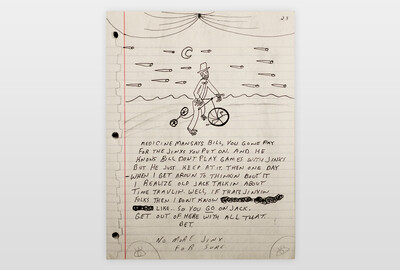 23
MEDICINE MAN SAYS BILL, YOU GONE PAY
FOR THE JINXS YOU PUT ON. AND HE
KNOWS BILL DON'T PLAY GAMES WITH JINKS
BUT HE JUST KEEP AT IT. THEN ONE DAY
WHEN I GET AROUN TO THINKON BOUT IT
I REALIZE OLD JACK TALKIN ABOUT
TIME TRAVLIN. WELL, IF THATS JINXIN
FOLKS THEN I DON'T KNOW
LIKE. SO YOU GO ON JACK.
GET OUT OF HERE WITH ALL THAT.
GET
NO MORE JINX
FOR SURE